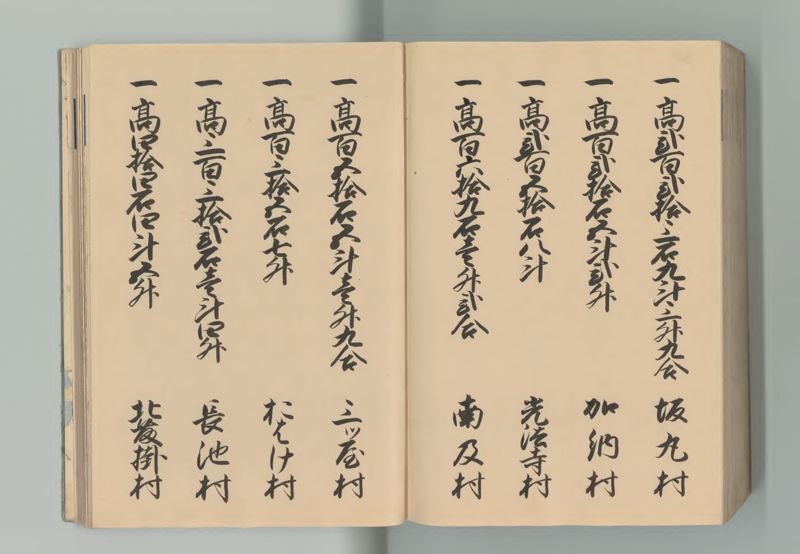 一 高弐百弐拾三石九斗三升九合 坂丸村
一 高百弐拾石五斗弐升 加納村
一 高弐百五拾石八斗 光法寺村
一 高百六拾九石壱升弐合 南及村
一 高百五拾石五斗壱升九合 三ッ屋村
一 高百三拾五石七升 おはけ村
一 高三百三拾弐石壱斗四升 長池村
一 高四拾四石四斗五升 北葭掛村